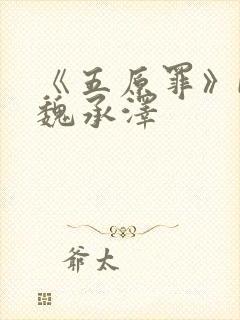 《五原罪》
魏承泽
爷太